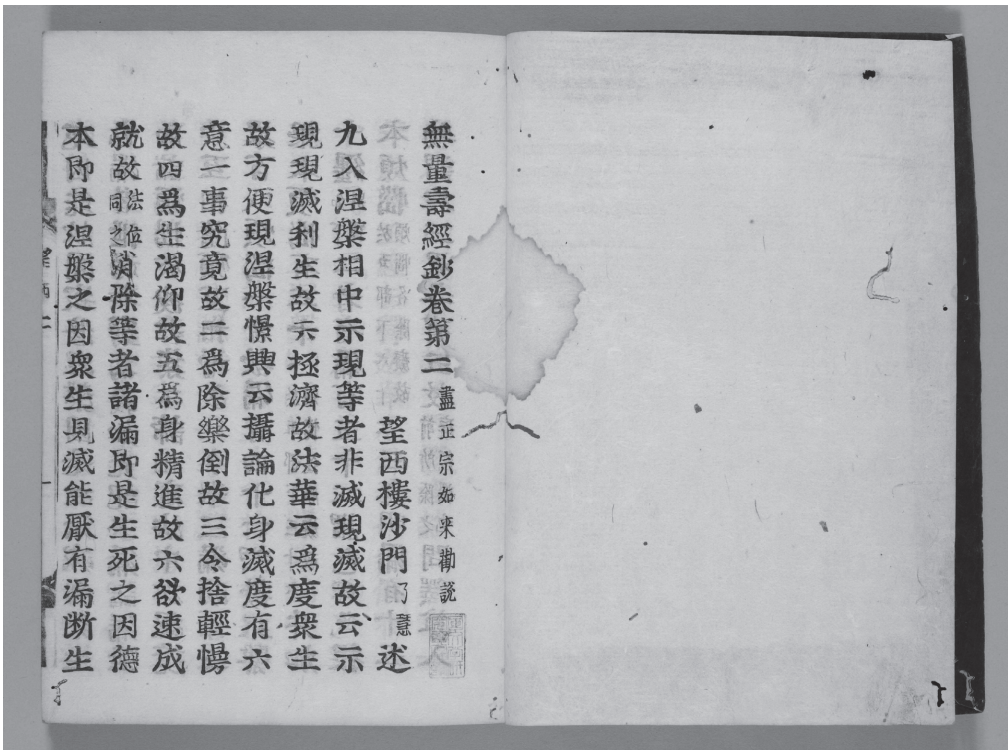 無量壽經鈔卷第二 盡正宗如來勸説
望西樓沙門 了慧 述
九入涅槃相中示現等者非滅現滅故云示
現現滅利生故云拯濟故法華云爲度衆生
故方便現涅槃憬興云攝論化身滅度有六
意一事究竟故二爲除樂倒故三令捨輕慢
故四爲生渇仰故五爲身精進故六欲速成
就故 法位同之 消除等者諸漏即是生死之因德
本即是涅槃之因衆生見滅能厭有漏断生